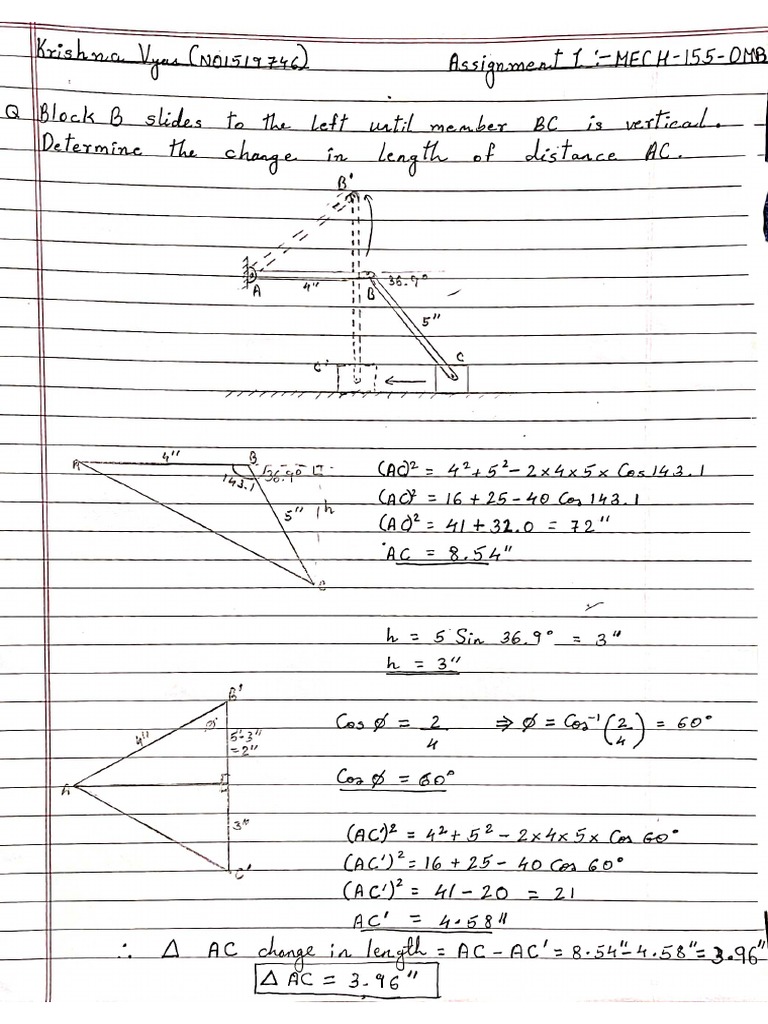 Krishna Vyas (N01519746) Assignment 1 :- MECH-155-OMB
Q Block B slides to the left until member BC is vertical.
Determine the change in length of distance AC.
B'
A 4" B 36.9°
5"
C' C
A 4" B 36.9°
143.1
5" h
C
(AC)² = 4² + 5² - 2×4×5× Cos 143.1
(AC)² = 16 + 25 - 40 Cos 143.1
(AC)² = 41 + 32.0 = 72"
AC = 8.54"
h = 5 Sin 36.9° = 3"
h = 3"
B'
4" ø 5-3"
=2"
A
3"
C'
Cos ø = 2/4 ⇒ ø = Cos⁻¹(2/4) = 60°
Cos ø = 60°
(AC')² = 4² + 5² - 2×4×5× Cos 60°
(AC')² = 16 + 25 - 40 Cos 60°
(AC')² = 41 - 20 = 21
AC' = 4.58"
∴ Δ AC change in length = AC - AC' = 8.54" - 4.58" = 3.96"
Δ AC = 3.96"